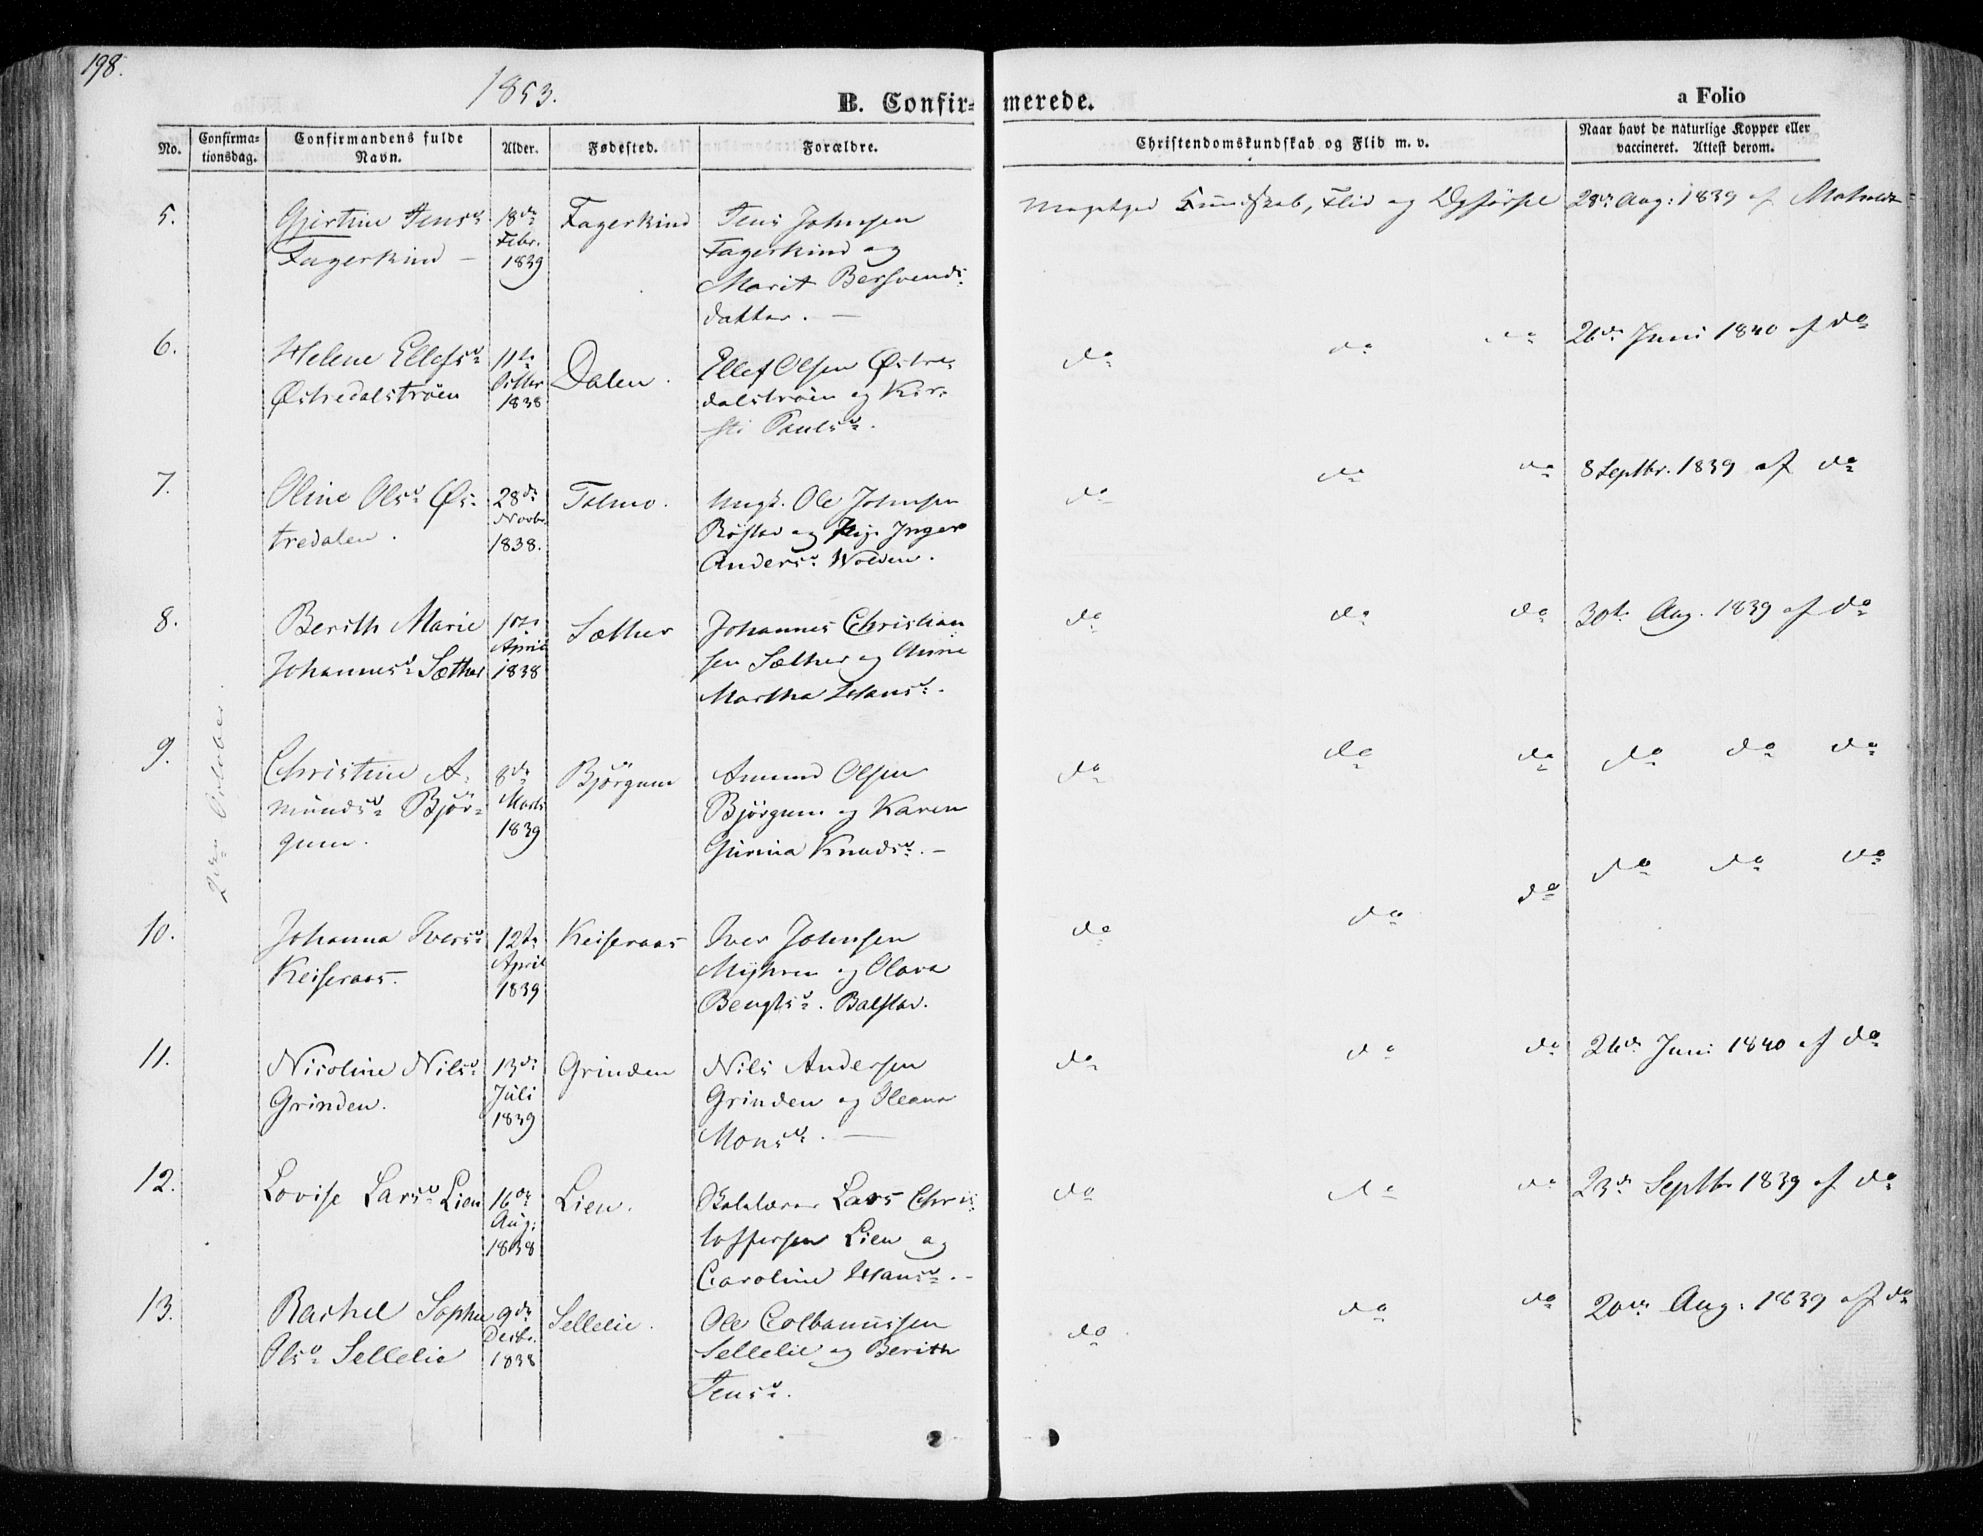 198.
1853.
B. Confir- merede.
a Folio
No.
Confirma-
tionsdag.
Confirmandens fulde
Navn.
Alder.
Fødested.
Forældre.
Christendomskundskab og Flid m. v.
Naar havt de naturlige Kopper eller
vaccineret. Attest derom.
2den October.
5.
Gjertine Jensd.
Fagerkind
18de
Febr.
1839
Fagerkind
Jens Johnsen
Fagerkind og
Marit Bersvends-
datter.
Kundskab, Flid og
28de Aug: 1839 af
6.
Helene Ellefsd.
Østredalstrøen
11te
Octbr
1838
Dalen.
Ellef Olsen Østre-
dalstrøen og Kir-
sti Paulsd.
do do do
26de Juni 1840 af do
7.
Oline Olsd. Øs-
tredalen.
28de
Novbr.
1838.
Tolmo.
Ungk. Ole Johnsen
Røstad og Pig. Inger
Andersd. Wolden.
do do do
8 Septbr. 1839 af do
8.
Berith Marie
Johannesd. Sæther
10de
April
1838
Sæther
Johannes Christian-
sen Sæther og Anne
Martha Hansd.
do do do
30te Aug. 1839 af do
9.
Christine A-
mundsd. Bjør-
gum.
8de
Marts
1839
Bjørgum
Amund Olsen
Bjørgum og Karen
Gurina Knudsd.
do do do
do do do
10.
Johanna Iversd.
Keiseraas.
12te
April
1839
Keiseraas
Iver Johnsen
Myhren og Olava
Bengtsd. Balstad.
do do do
do do do
11.
Nicoline Nilsd.
Grinden.
13de
Juli
1839
Grinden
Nils Andersen
Grinden og Oleana
Monsd.
do do do
26de Juni 1840 af do
12.
Lovise Larsd. Lien
16de
Aug:
1838
Lien.
Lars Chris-
toffersen Lien og
Caroline Hansd.
do do do
23de Septbr 1839 af do
13.
Rachel Sophie
Olsd. Sellelie
9de
Decbr.
1838
Sellelie.
Ole Colbanussen
Sellelie og Berith
Jensd.
do do do
20de Aug. 1839 af do